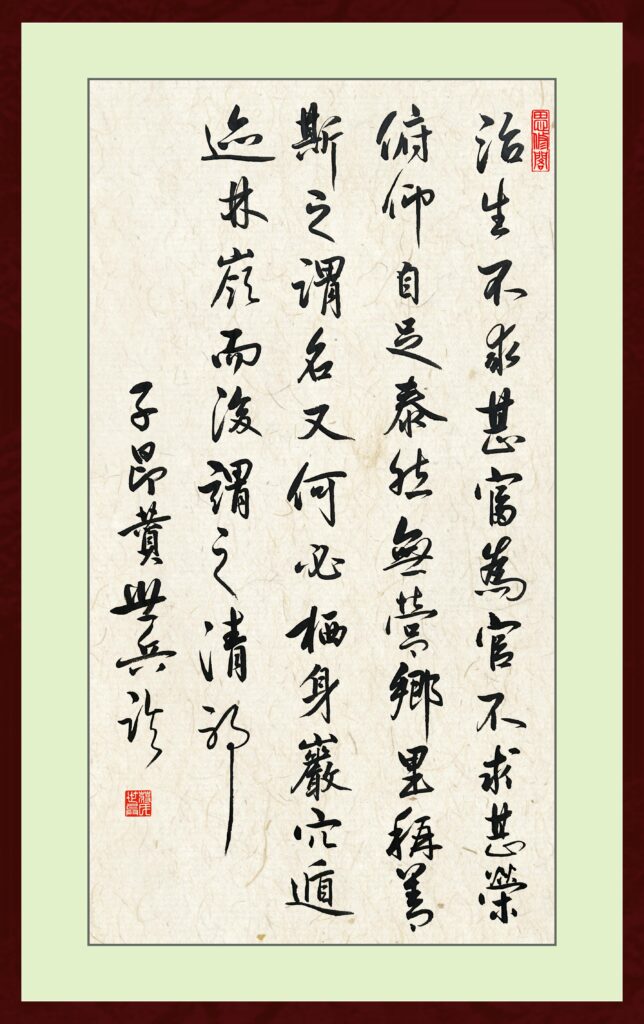 思修閣
治生不求甚富為官不求甚榮
俯仰自足泰然無營鄉里稱善
斯之謂名又何必栖身巖穴遁
迹林嶺而後謂之清耶
子昂黃世兵臨